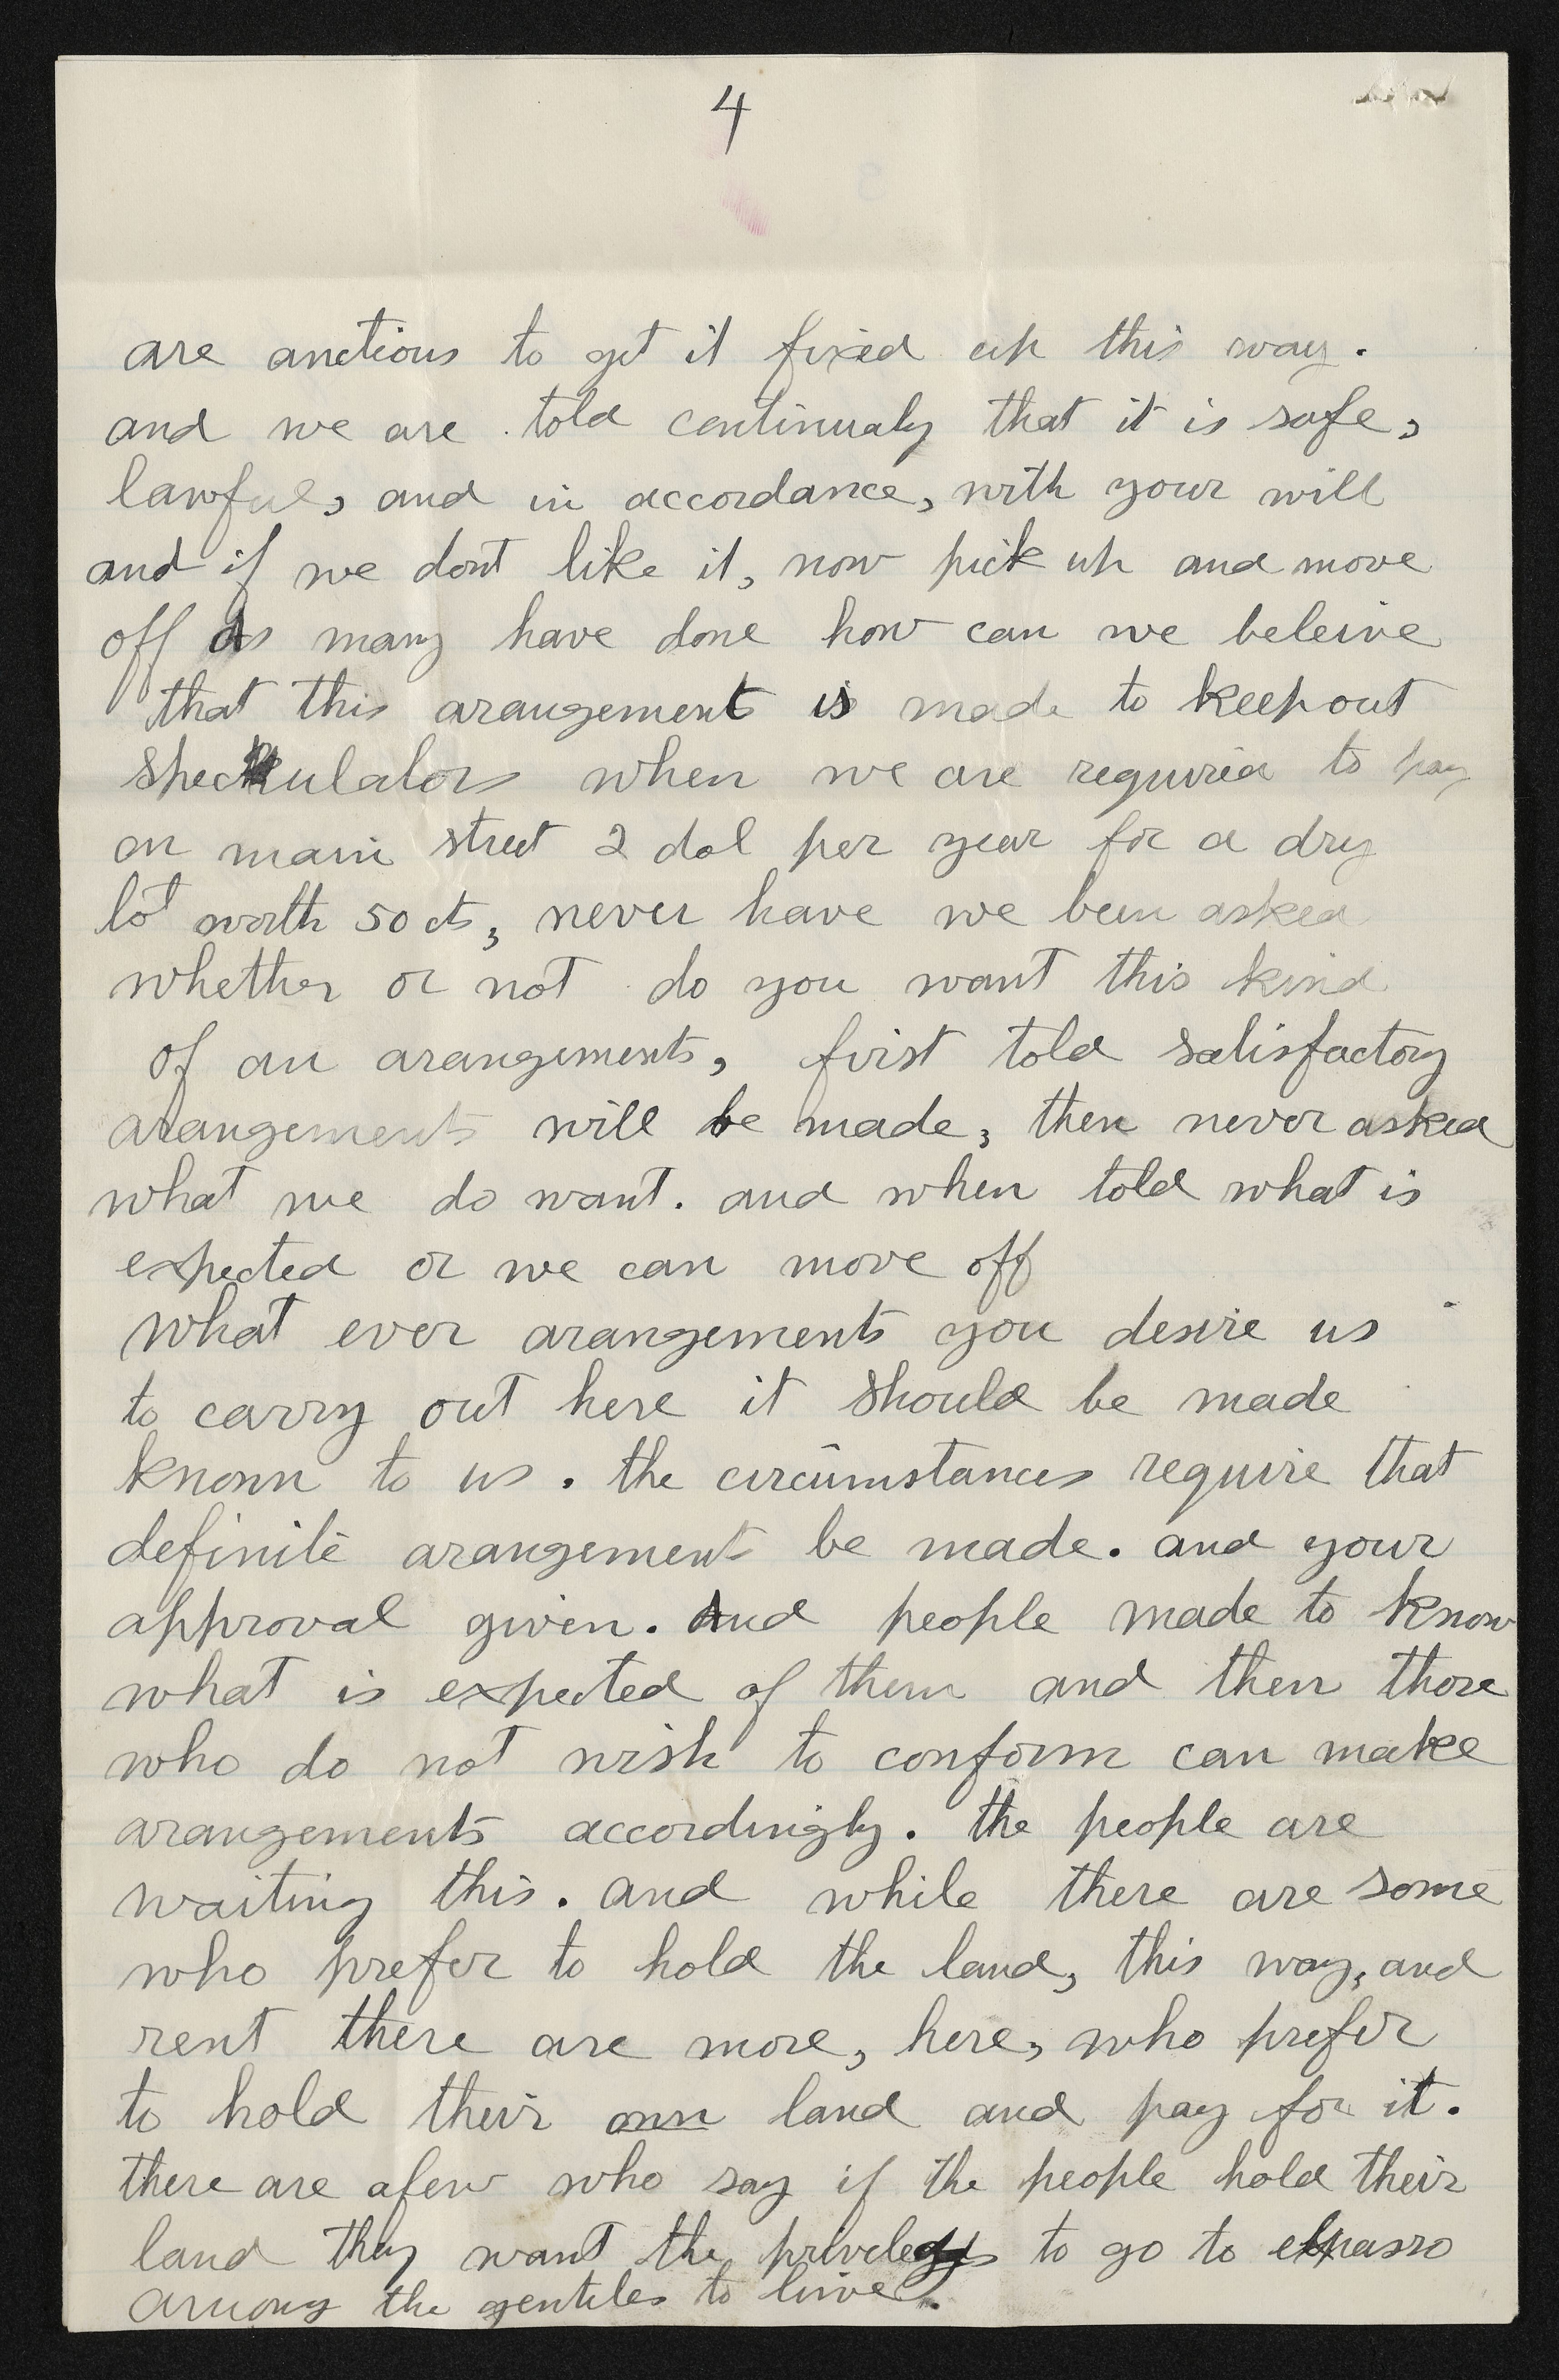 4
are anctious to get it fixed up this way.
and we are told continualy that it is safe,
lawful, and in accordance, with your will
and if we dont like it, now pick up and move
off as many have done how can we beleive
that this arangement is made to keep out
speckulators when we are required to pay
on main street 2 dol per year for a dry
lot worth 50 cts, never have we been asked
whether or not do you want this kind
of an arangements, first told satisfactory
arangements will be made, then never asked
what we do want. and when told what is
expected or we can move off
what ever arangements you desire us
to carry out here it should be made
known to us. the circumstances require that
definite arangement be made. and your
approval given. And people made to know
what is expected of them and then those
who do not wish to conform can make
arangements accordingly. the people are
waiting this. and while there are some
who prefer to hold the land, this way, and
rent there are more, here, who prefer
to hold their own land and pay for it.
there are afew who say if the people hold their
land they want the priveleges to go to elpasso
among the gentiles to live.